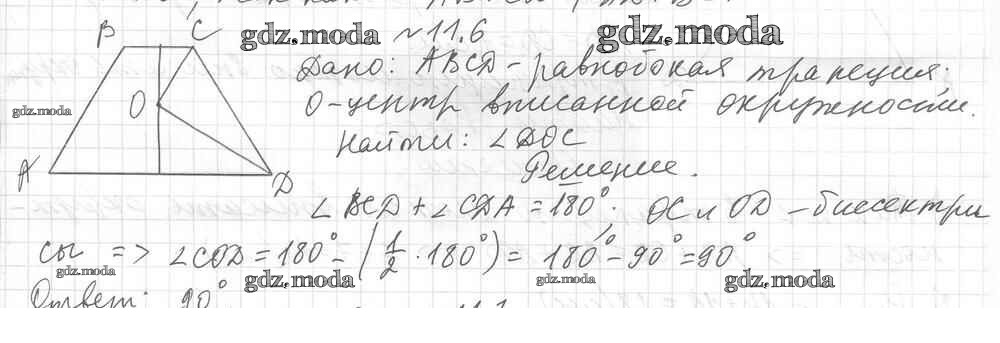 B C gdz.moda № 11.6 gdz.moda
Дано: ABCD - равнобокая трапеция.
gdz.moda O O - центр вписанной окружности.
Найти: ∠DOC
A D Решение.
∠BCD + ∠CDA = 180°; OC и OD - биссектри
сы => ∠COD = 180° - (1/2 · 180°) = 180° - 90° = 90°
gdz.moda gdz.moda gdz.moda gdz.moda
Ответ: 90°